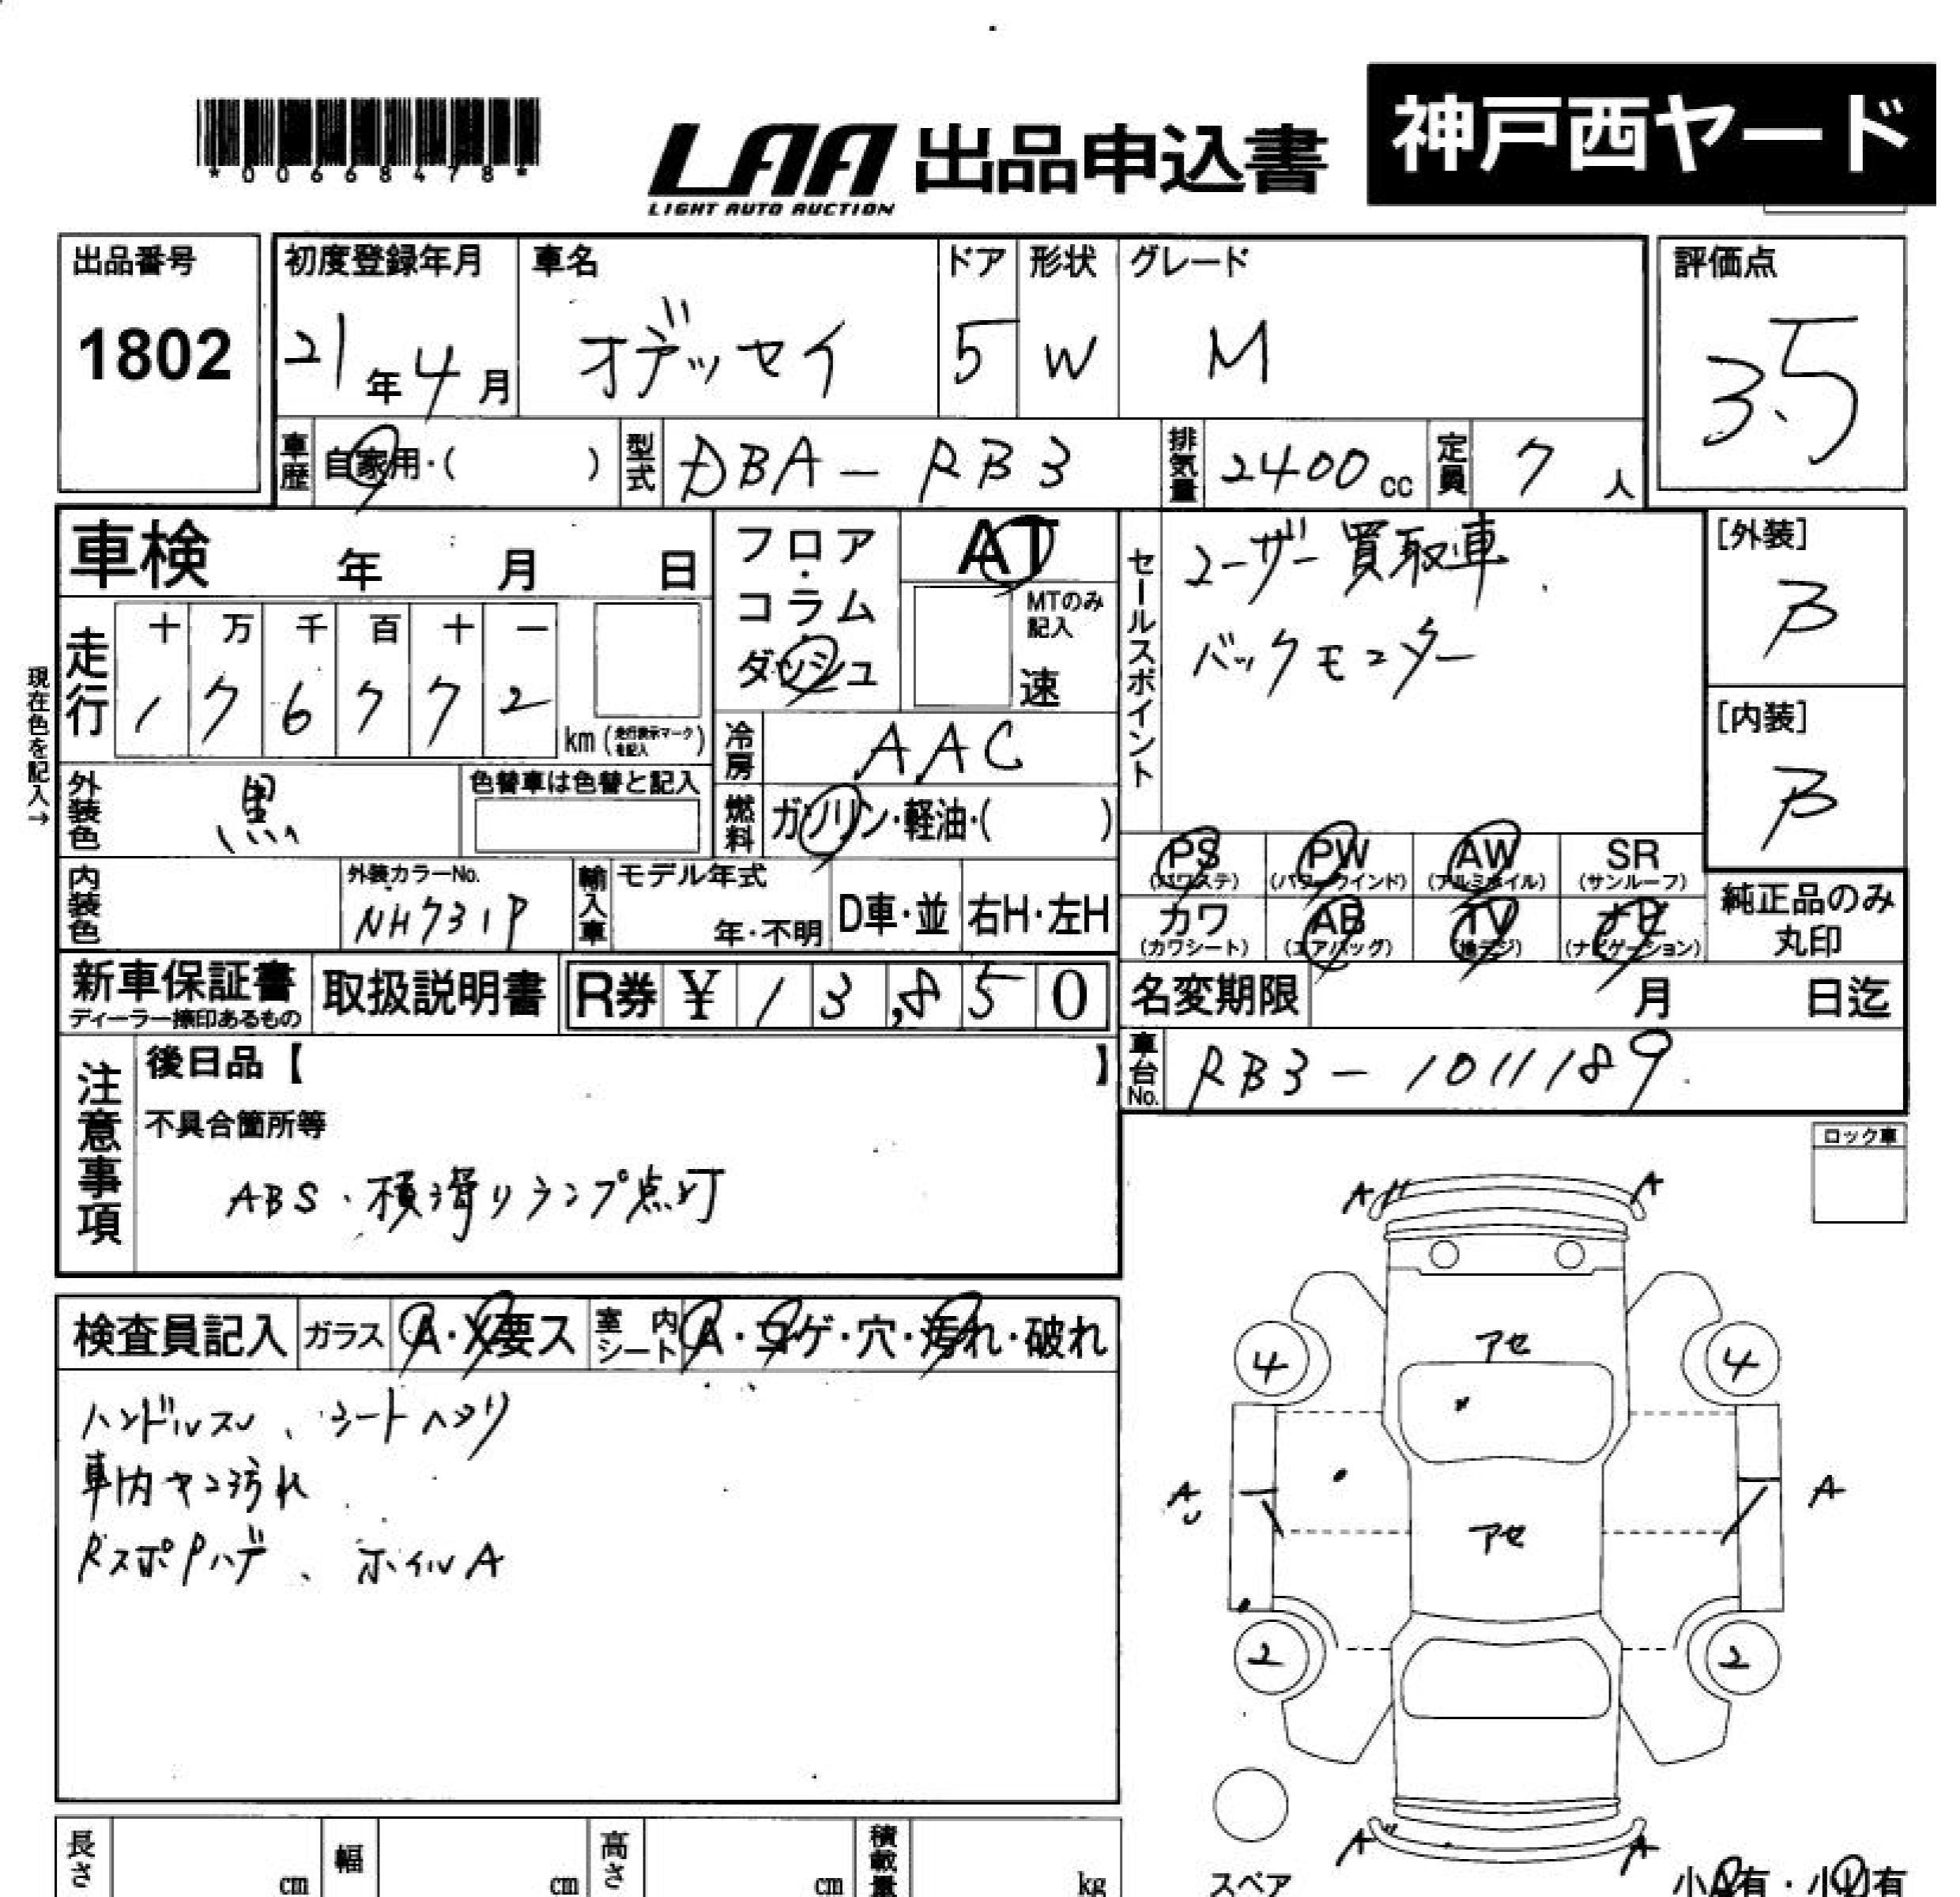 *00668478*
LAA 出品申込書 神戸西ヤード
LIGHT AUTO AUCTION
出品番号 1802
初度登録年月 21年4月
車名 オデッセイ
ドア 5
形状 W
グレード M
評価点 3.5
車歴 自家用・( )
型式 DBA-RB3
排気量 2400cc
定員 7人
車検 年 月 日
フロア・コラム・ダッシュ
AT
MTのみ記入
速
セールスポイント
ユーザー買取車
バックモニター
[外装] B
[内装] B
現在色を記入→
走行 十 万 千 百 十 一
1 7 6 7 7 2 km (走行表示マークを記入)
冷房 AAC
外装色 黒
色替車は色替と記入
燃料 ガソリン・軽油・( )
内装色
外装カラーNo. NH731P
輸入車 モデル年式 年・不明 D車・並 右H・左H
PS (パワステ) PW (パワーウインド) AW (アルミホイル) SR (サンルーフ)
カワ (カワシート) AB (エアバッグ) TV (地デジ) ナビ (ナビゲーション)
純正品のみ丸印
新車保証書
ディーラー捺印あるもの
取扱説明書
R券 ¥ 13,850
名変期限 月 日迄
車台No. RB3-1011189
注意事項
後日品【 】
不具合箇所等
ABS、横滑りランプ点灯
ロック車
検査員記入 ガラス A・X要ス 室内シート A・コゲ・穴・汚れ・破れ
ハンドルスレ、シートヘタリ
車内ヤニ汚れ
RスポPハゲ、ホイルA
A A
アセ
4 4
A A
アセ
2 2
A A
スペア
小A有・小U有
長さ cm 幅 cm 高さ cm 積載量 kg